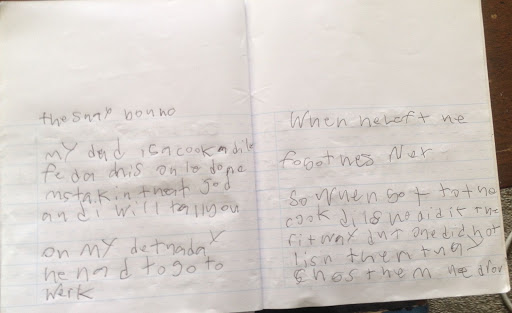 the snap bonno
My dad is a cook a dile
fedor this on le done
mstak in that god
and i will tall you
on my detnaday
he had to go to
werk
When he left he
fogot nes Ner
So When got tot no
cook dils he did it the
fit way but one did not
lisn then they
chos them he dfor